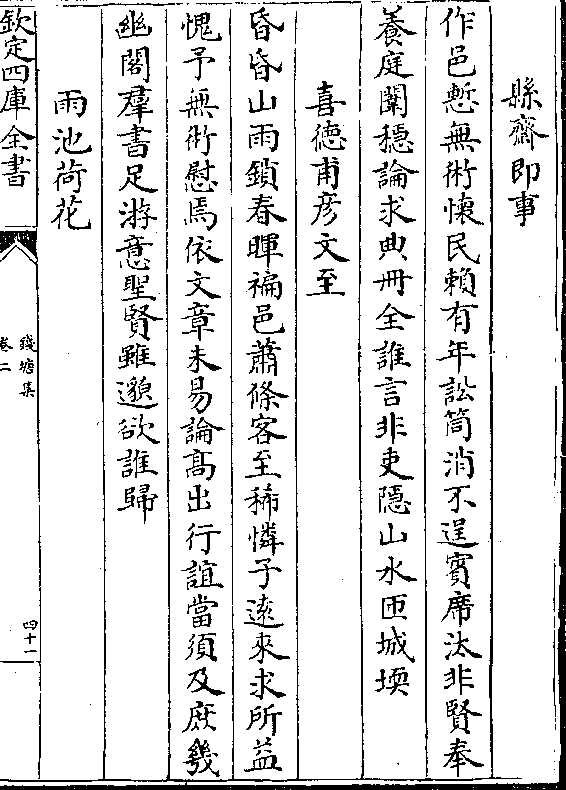 縣齋即事
作邑慙無術懷民賴有年訟筒消不逞賓席汰非賢奉
養庭闈穏論求典冊全誰言非吏隠山水匝城堧
喜徳甫彦文至
昏昏山雨鎖春暉褊邑蕭條客至稀憐子逺來求所益
愧予無術慰焉依文章未易論髙出行誼當須及庶幾
幽閣羣書足游意聖賢雖邈欲誰歸
雨池荷花
欽定四庫全書
錢塘集
卷二
四十一